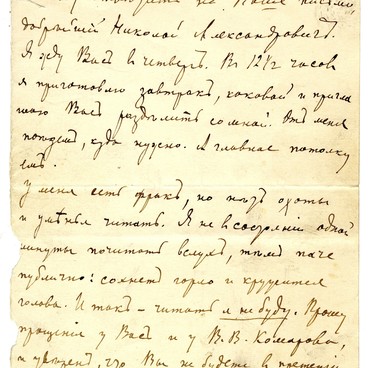 на Ваше письмо,
добрѣйшій Николай Александровичъ.
Я жду Васъ въ четвергъ. Въ 12½ часовъ
я приготовлю завтракъ, каковой и пригла
шаю Васъ раздѣлить со мной. Отъ меня
поѣдемъ, куда нужно. А главное потолку
емъ.
У меня есть фракъ, но нѣтъ охоты
и умѣнья читать. Я не въ состояніи одной
минуты почитать вслухъ, тѣмъ паче
публично: сохнетъ горло и кружится
голова. И такъ — читать я не буду. Прошу
прощенія у Васъ и у В. В. Комарова,
и увѣренъ, что Вы не будете въ претензіи